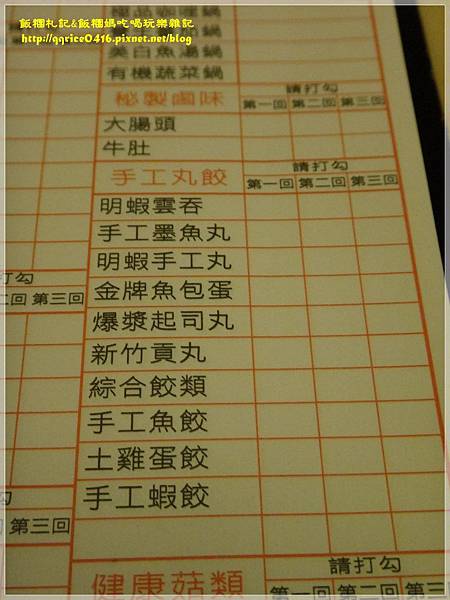 飯糰札記&飯糰媽吃喝玩樂雜記
http://qqrice0416.pixnet.net/blog
美白魚湯鍋
有機蔬菜鍋
秘製滷味 請打勾
第一回 第二回 第三回
大腸頭
牛肚
手工丸餃 請打勾
第一回 第二回 第三回
明蝦雲吞
手工墨魚丸
明蝦手工丸
金牌魚包蛋
爆漿起司丸
新竹貢丸
綜合餃類
手工魚餃
土雞蛋餃
手工蝦餃
請打勾
健康菇類 第一回 第二回 第三回
打勾
二回 第三回
勾
第三回